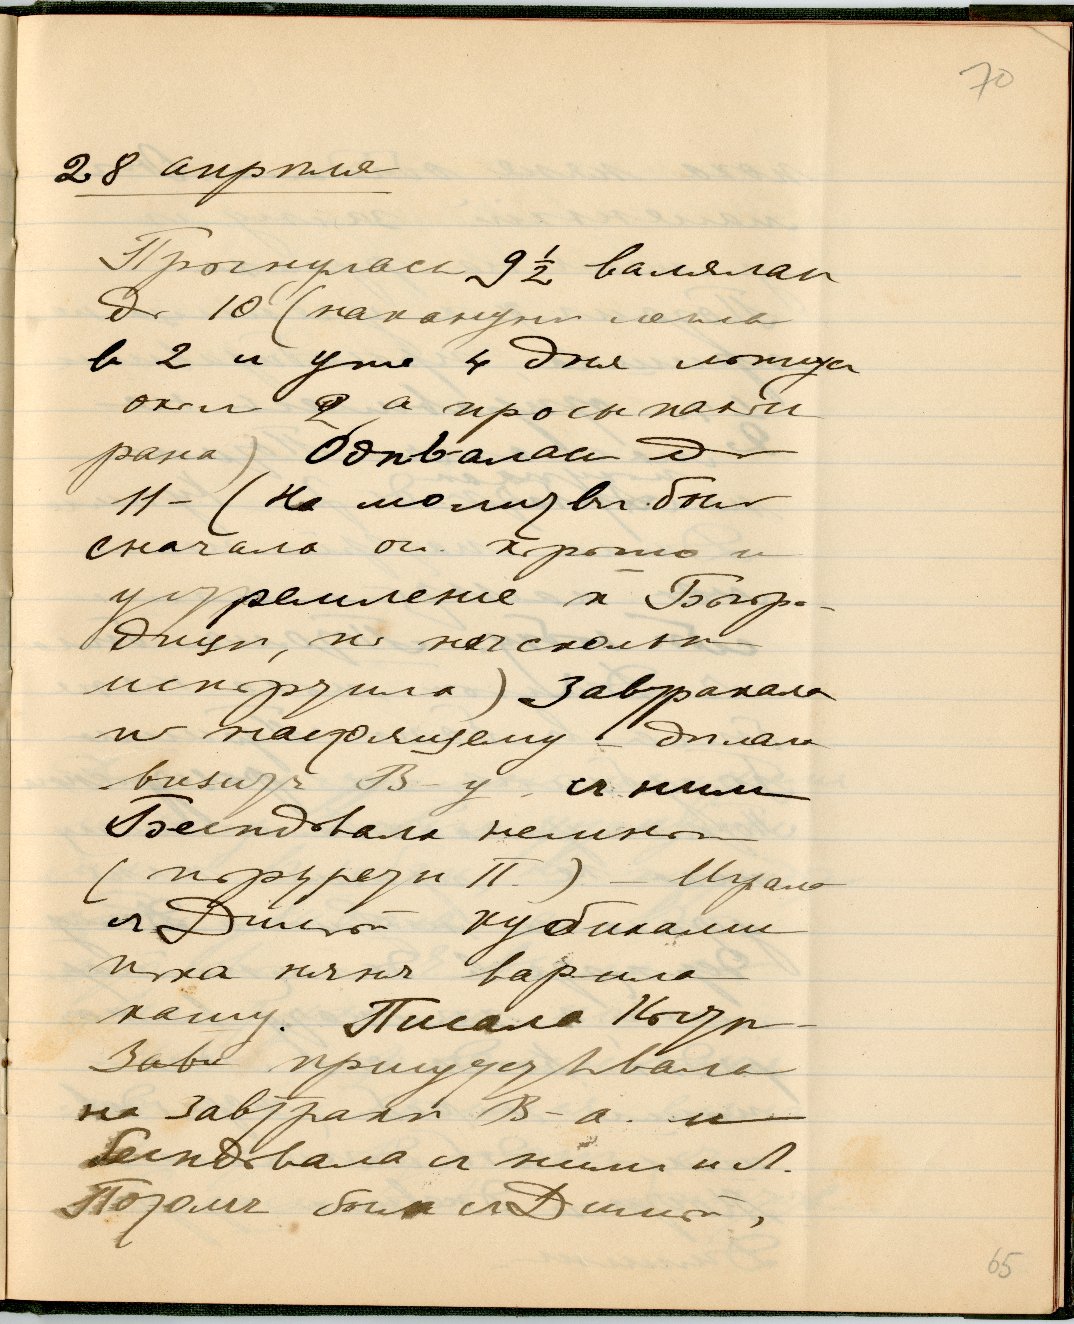 70
28 апрѣля
Проснулась 9 1/2 валялась
до 10 (накануне легла
в 2 и уже 4 дня ложусь
около 2 а просыпаюсь
рано) Одѣвалась до
11 – (На молитвѣ было
сначала оч. хорошо и
устремление к Богоро-
дицѣ, но несколько
испортила) Завтракала
по настоящему – дѣлала
визитъ В–у. съ ним
Бесѣдовала немного
(портреты П.) – Играла
съ Димой кубиками
пока няня варила
кашу. Писала
присутствовала
на завтракѣ В–а. и
бесѣдовала съ ним и Л.
Потомъ была съ Димой,
65